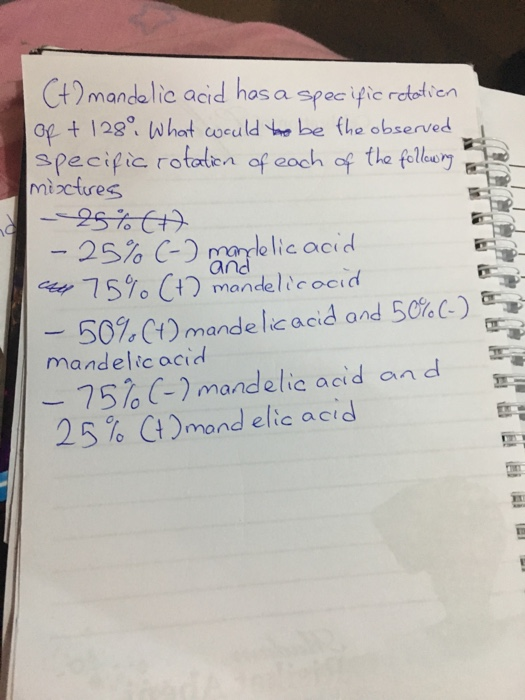 (+) mandelic acid has a specific rotation
of + 128°. What would be the observed
specific rotation of each of the following
mixctures
- 25% (+)
- 25% (-) mandelic acid
and
75% (+) mandelic acid
- 50% (+) mandelic acid and 50% (-)
mandelic acid
- 75% (-) mandelic acid and
25% (+) mandelic acid